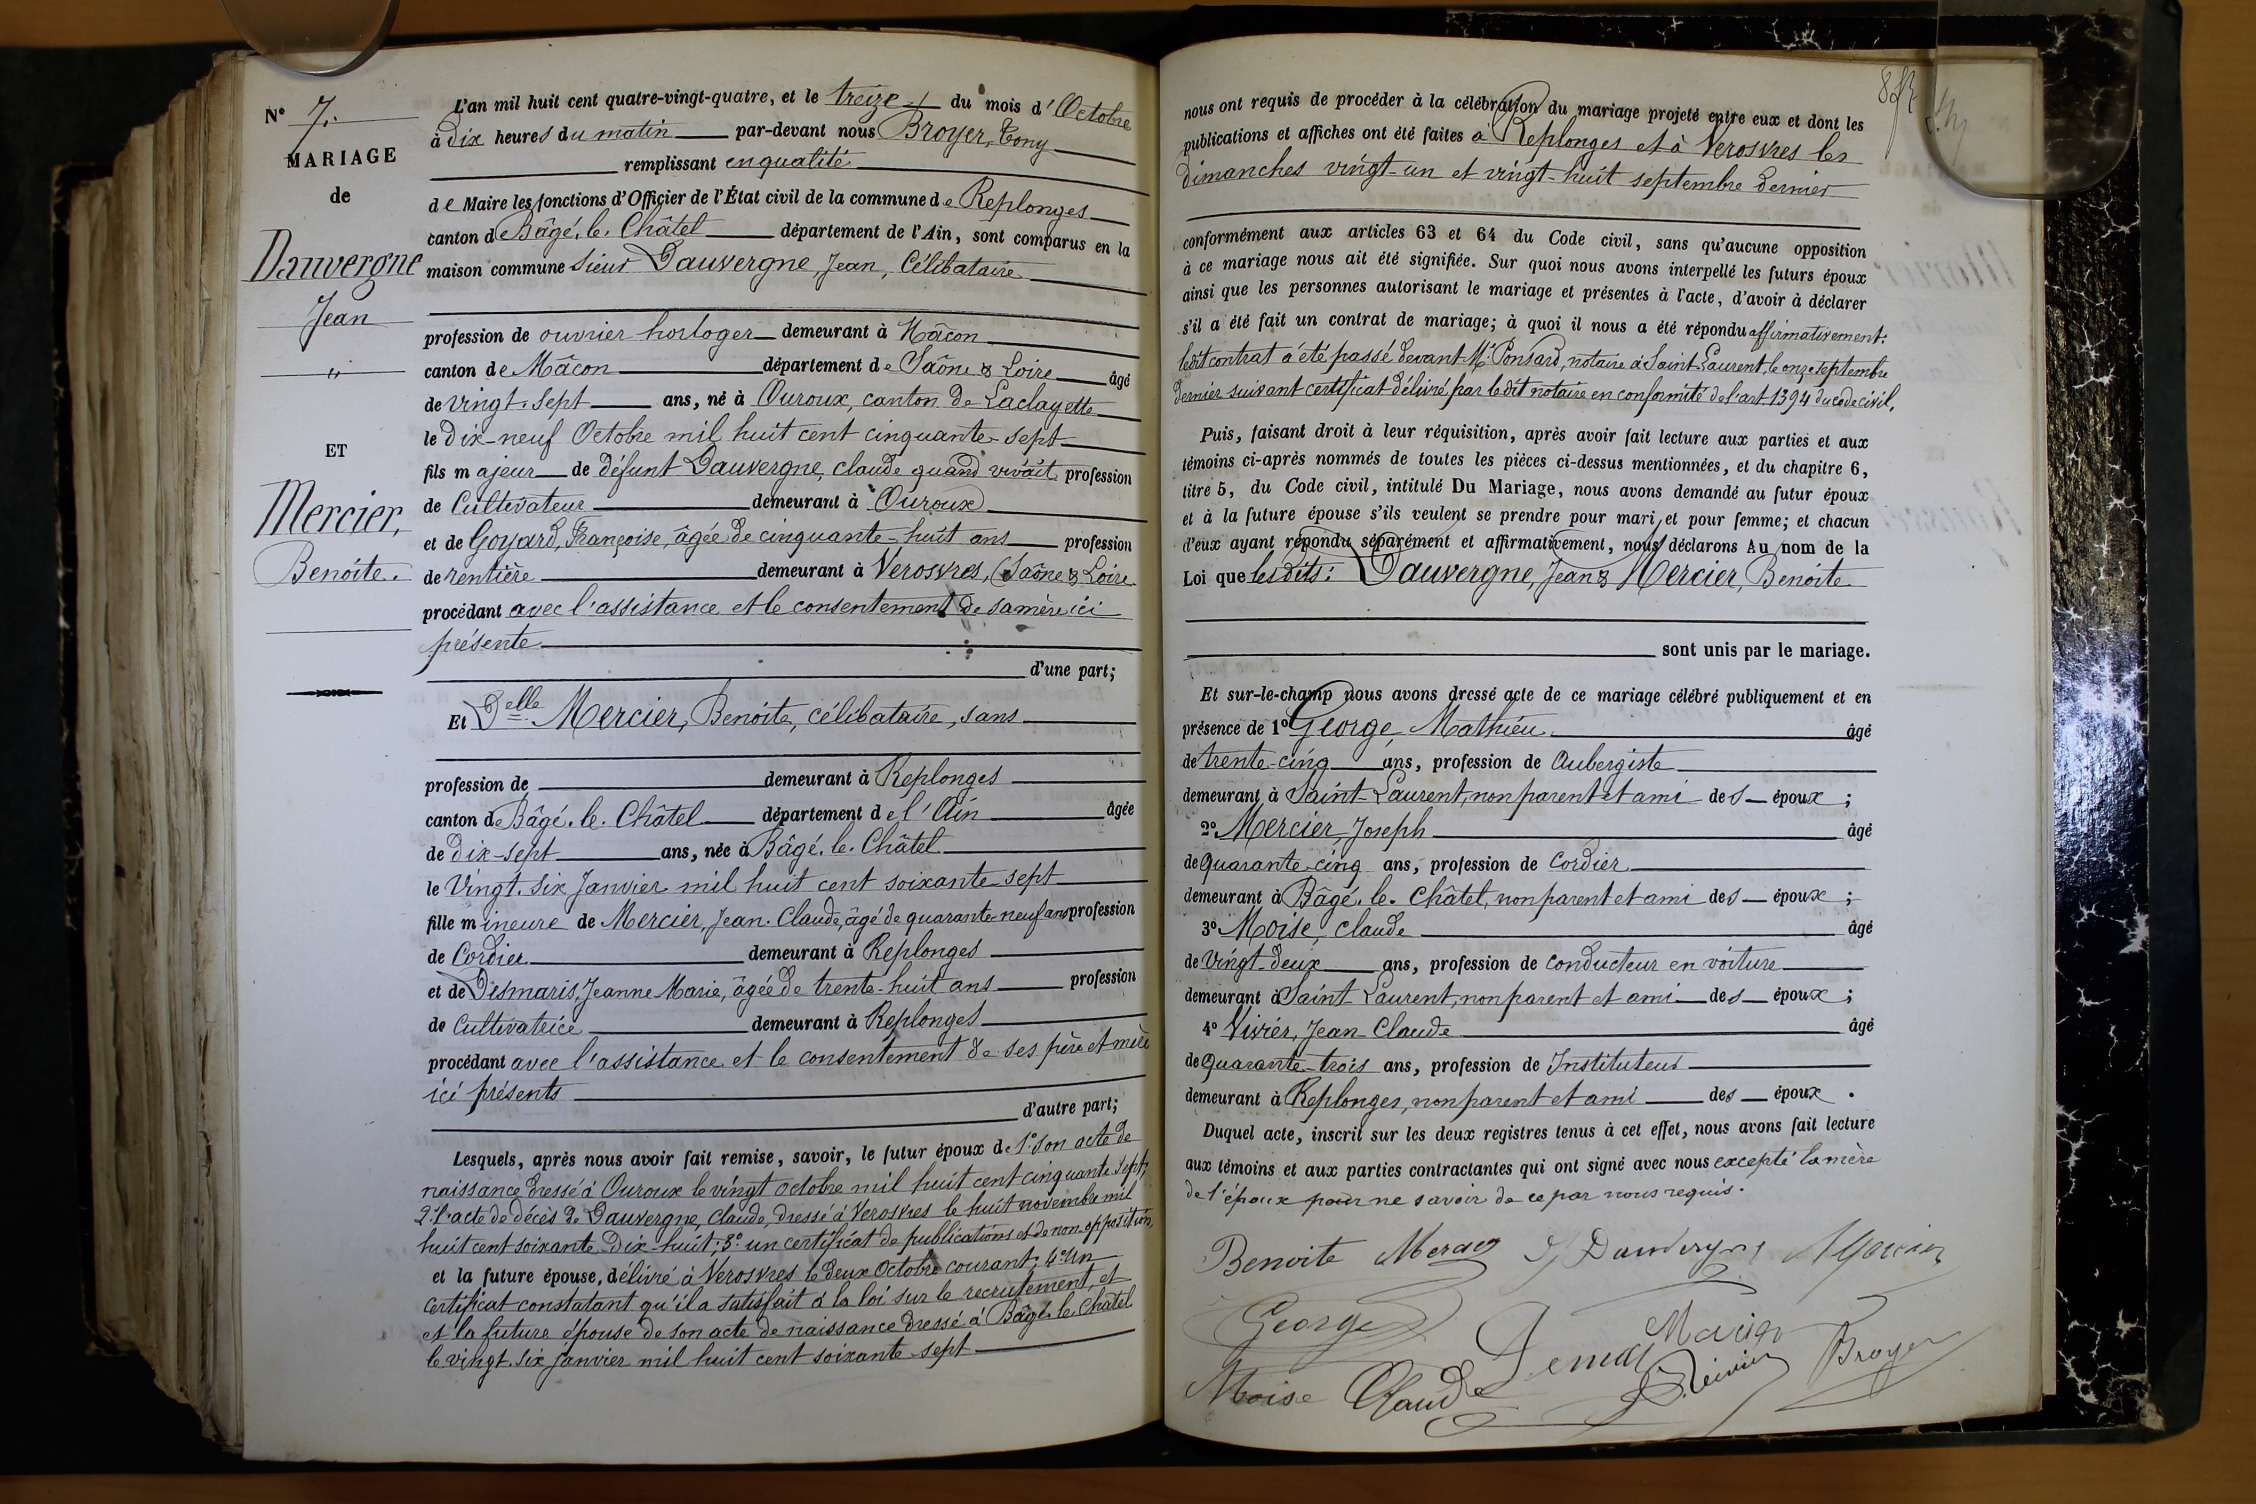 N° 7.
MARIAGE
de
Dauvergne
Jean
"
ET
Mercier,
Benoite.
L'an mil huit cent quatre-vingt-quatre, et le treize du mois d'Octobre
à dix heures du matin par-devant nous Broyer, Tony
remplissant en qualité
de Maire les fonctions d'Officier de l'État civil de la commune de Replonges
canton de Bâgé-le-Châtel département de l'Ain, sont comparus en la
maison commune Sieur Dauvergne, Jean, Célibataire
profession de ouvrier horloger demeurant à Mâcon
canton de Mâcon département de Saône & Loire âgé
de vingt-sept ans, né à Ouroux, canton de Laclayette
le dix-neuf Octobre mil huit cent cinquante-sept
fils majeur de défunt Dauvergne, claude quand vivait profession
de Cultivateur demeurant à Ouroux
et de Goyard, Françoise, âgée de cinquante-huit ans profession
de rentière demeurant à Verosvres, (Saône & Loire
procédant avec l'assistance et le consentement de sa mère ici
présente
d'une part;
Et Delle Mercier, Benoite, célibataire, sans
profession de demeurant à Replonges
canton de Bâgé-le-Châtel département de l'Ain âgée
de dix-sept ans, née à Bâgé-le-Châtel
le Vingt-six Janvier mil huit cent soixante-sept
fille mineure de Mercier, Jean-Claude, âgé de quarante-neuf ans profession
de Cordier demeurant à Replonges
et de Desmaris, Jeanne-Marie, âgée de trente-huit ans profession
de Cultivatrice demeurant à Replonges
procédant avec l'assistance et le consentement de ses père et mère
ici présents
d'autre part;
Lesquels, après nous avoir fait remise, savoir, le futur époux de 1° son acte de
naissance dressé à Ouroux le vingt octobre mil huit cent cinquante-sept;
2° l'acte de décès de Dauvergne, Claude, dressé à Verosvres le huit novembre mil
huit cent soixante-dix-huit; 3° un certificat de publications et de non-opposition
et la future épouse, délivré à Verosvres le deux Octobre courant; 4° un
certificat constatant qu'il a satisfait à la loi sur le recrutement, et
et la future épouse de son acte de naissance dressé à Bâgé-le-Châtel
le vingt-six Janvier mil huit cent soixante-sept
nous ont requis de procéder à la célébration du mariage projeté entre eux et dont les
publications et affiches ont été faites à Replonges et à Verosvres les
dimanches vingt-un et vingt-huit septembre dernier
conformément aux articles 63 et 64 du Code civil, sans qu'aucune opposition
à ce mariage nous ait été signifiée. Sur quoi nous avons interpellé les futurs époux
ainsi que les personnes autorisant le mariage et présentes à l'acte, d'avoir à déclarer
s'il a été fait un contrat de mariage; à quoi il nous a été répondu affirmativement:
ledit contrat a été passé devant Me Ponsard, notaire à Saint-Laurent, le onze septembre
dernier suivant certificat délivré par ledit notaire en conformité de l'art. 1394 du code civil.
Puis, faisant droit à leur réquisition, après avoir fait lecture aux parties et aux
témoins ci-après nommés de toutes les pièces ci-dessus mentionnées, et du chapitre 6,
titre 5, du Code civil, intitulé Du Mariage, nous avons demandé au futur époux
et à la future épouse s'ils veulent se prendre pour mari et pour femme; et chacun
d'eux ayant répondu séparément et affirmativement, nous déclarons Au nom de la
Loi que lesdits: Dauvergne, Jean & Mercier, Benoite
sont unis par le mariage.
Et sur-le-champ nous avons dressé acte de ce mariage célébré publiquement et en
présence de 1° George, Mathieu âgé
de trente-cinq ans, profession de Aubergiste
demeurant à Saint-Laurent, non parent et ami des époux;
2° Mercier, Joseph âgé
de quarante-cinq ans, profession de Cordier
demeurant à Bâgé-le-Châtel, non parent et ami des époux;
3° Moise, claude âgé
de vingt-deux ans, profession de conducteur en voiture
demeurant à Saint-Laurent, non parent et ami des époux;
4° Vivier, Jean-Claude âgé
de quarante-trois ans, profession de Instituteur
demeurant à Replonges, non parent et ami des époux.
Duquel acte, inscrit sur les deux registres tenus à cet effet, nous avons fait lecture
aux témoins et aux parties contractantes qui ont signé avec nous excepté la mère
de l'époux pour ne savoir de ce par nous requis.
Benoite Mercier J Dauvergne
George
Broyer
Moise Claude